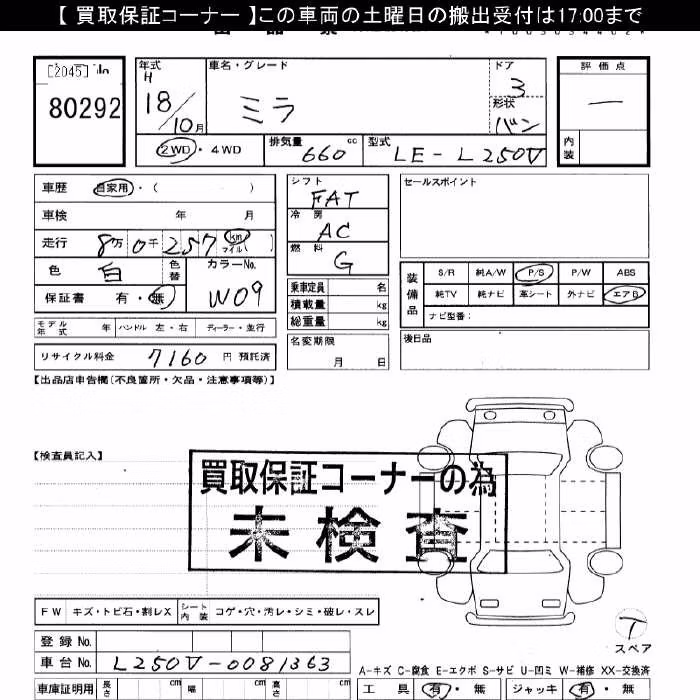 【 買取保証コーナー 】この車両の土曜日の搬出受付は17:00まで
[2045] No
80292
年式 H 18/10月
車名・グレード ミラ
ドア 3
形状 バン
評価点 —
内装
2WD・4WD
排気量 660 cc
型式 LE-L250V
車歴 自家用・( )
車検 年 月
走行 8万0千257 (km マイル)
色 白 色替 カラーNo. W09
保証書 有・無
モデル年式 年 ハンドル 左・右 ディーラー・並行
リサイクル料金 7160 円 預託済
シフト FAT
冷房 AC
燃料 G
乗車定員 名
積載量 kg
総重量 kg
名変期限 月 日
セールスポイント
装備品
S/R 純A/W P/S P/W ABS
純TV 純ナビ 革シート 外ナビ エアB
ナビ型番:
後日品
【出品店申告欄(不良箇所・欠品・注意事項等)】
【検査員記入】
買取保証コーナーの為
未検査
FW キズ・トビ石・割レX シート内装 コゲ・穴・汚レ・シミ・破レ・スレ
T
スペア
登録No.
車台No. L250V-0081363
A-キズ C-腐食 E-エクボ S-サビ U-凹ミ W-補修 XX-交換済
車庫証明用 長さ cm 幅 cm 高さ cm
工具 有・無 ジャッキ 有・無